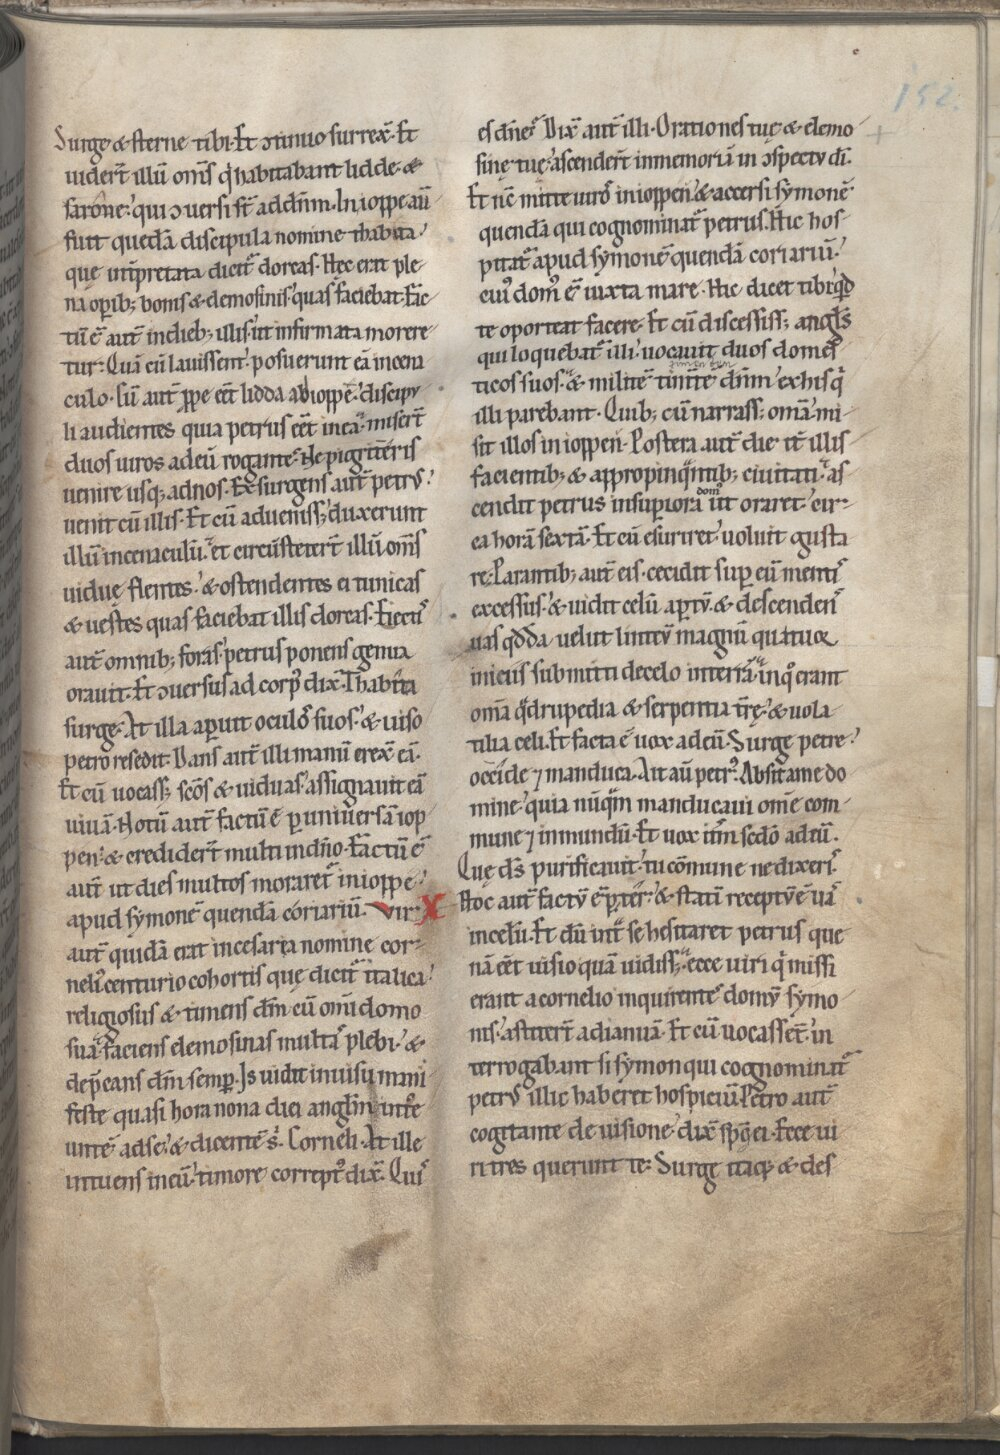 152.
Surge & sterne tibi. Et ↄtinuo surrex̄. Et
uider̄t illū om̄s q̇ habitabant liddę. &
sarone. qui ↄuersi st̄ ad dn̄m. In ioppe aū
fuit quędā discipula nomine thabita.
quę int̄pretata dicit᷒ dorcas. Hęc erat ple
na oꝑib; bonis & elemosinis. quas faciebat. Fac
tū ē aut̄ in dieb; illis. ut infirmata morere
tur. Quā cū lauissent. posuerunt eā in cena
culo. Cū aut̄ ꝓpe eēt lidda ab ioppe. discipu
li audientes quia petrus eēt in ea. miser̄t
duos uiros ad eū rogante᷒. Ne pigrit̄eris
uenire usq; ad nos. Exsurgens aut̄ petrus.
uenit cū illis. Et cū aduenis&#x17F;;, duxerunt
illū in cenaculū. et circūsteter̄t illū om̄s
uiduę flentes. & ostendentes ei tunicas
& uestes quas faciebat illis dorcas. Eiectis
aut̄ omnib; foras. petrus ponens genua
orauit. Et ↄuersus ad corp᷒ dix̄. Thabita
surge. At illa aꝑuit oculos suos. & uiso
petro resedit. Dans aut̄ illi manū erex̄ eā.
Et cū uocass; sc̄os & uiduas. assignauit eā
uiuā. Notū aut̄ factū ē ꝑ uniuersā iop
pen. & credider̄t multi in dn̄o. Factū ē
aut̄ ut dies multos moraret᷒ in ioppe.
apud symonē quendā coriariū. Vir X
aut̄ quidā erat in cesaria nomine cor
neli᷒ centurio cohortis quę dicit᷒ italica.
religiosus & timens dm̄ cū omi domo
sua. faciens elemosinas multas plebi. &
dep̄cans dm̄ semꝑ. Is uidit in uisu mani
feste quasi hora nona diei angl̄m introe
untē ad se. & dicentē s̄. Corneli. At ille
intuens in eū. timore corrept᷒ dix̄. Quis
es dn̄e? Dix̄ aut̄ illi. Orationes tuę & elemo
sinę tuę ascender̄t in memoriā in ↄspectu dī.
Et nc̄ mitte uiros in ioppen & accersi symonē
quendā qui cognominat᷒ petrus. Hic hos
pitat᷒ apud symonē quendā coriariū.
cui᷒ dom᷒ ē iuxta mare. Hic dicet tibi qd̄
te oporteat facere. Et cū discessiss; angl̄s
qui loquebat᷒ illi. uocauit duos domes
ticos suos. & militē timt̄ē dn̄m ex his q̇
illi parebant. Quib; cū narrass; om̄a. mi
sit illos in ioppen. Postera aut̄ die it̄ illis
facientib; & appropinq̇ntib; ciuitati. as
cendit petrus in suꝑiora dom᷒ ut oraret. cir
ca horā sextā. Et cū esuriret. uoluit gusta
re. Parantib; aut̄ eis. cecidit suꝑ eū mentis
excessus. & uidit celū aꝑtū. & descendens
uas qddā uelut linteū magnū quatuor
iniciis submitti de celo in terrā. in q᷒ erant
om̄a q̇drupedia & serpentia tr̄ę. & uola
tilia celi. Et facta ē uox ad eū. Surge petre.
occide ⁊ manduca. Ait aū petr᷒. Absit a me do
mine. quia nūq̇m manducaui om̄e com
mune ⁊ inmundū. Et uox itm̄ sc̄do ad eū.
Quę ds̄ purificauit. tu cōmune ne dixeris.
Hoc aut̄ factū ē ꝑ ter. & statī receptū ē uas
in celū. Et dū int᷒ se hesitaret petrus que
nā eēt uisio quā uidiss;. ecce uiri q̇ missi
erant a cornelio inquirentes domū symo
nis. astiter̄t ad ianuā. Et cū uocassēt. in
terrogabant si symon qui cognominat᷒
petrus illic haberet hospiciū. Petro aut̄
cogitante de uisione. dix̄ sps̄ ei. Ecce ui
ri tres querunt te. Surge itaq; & des